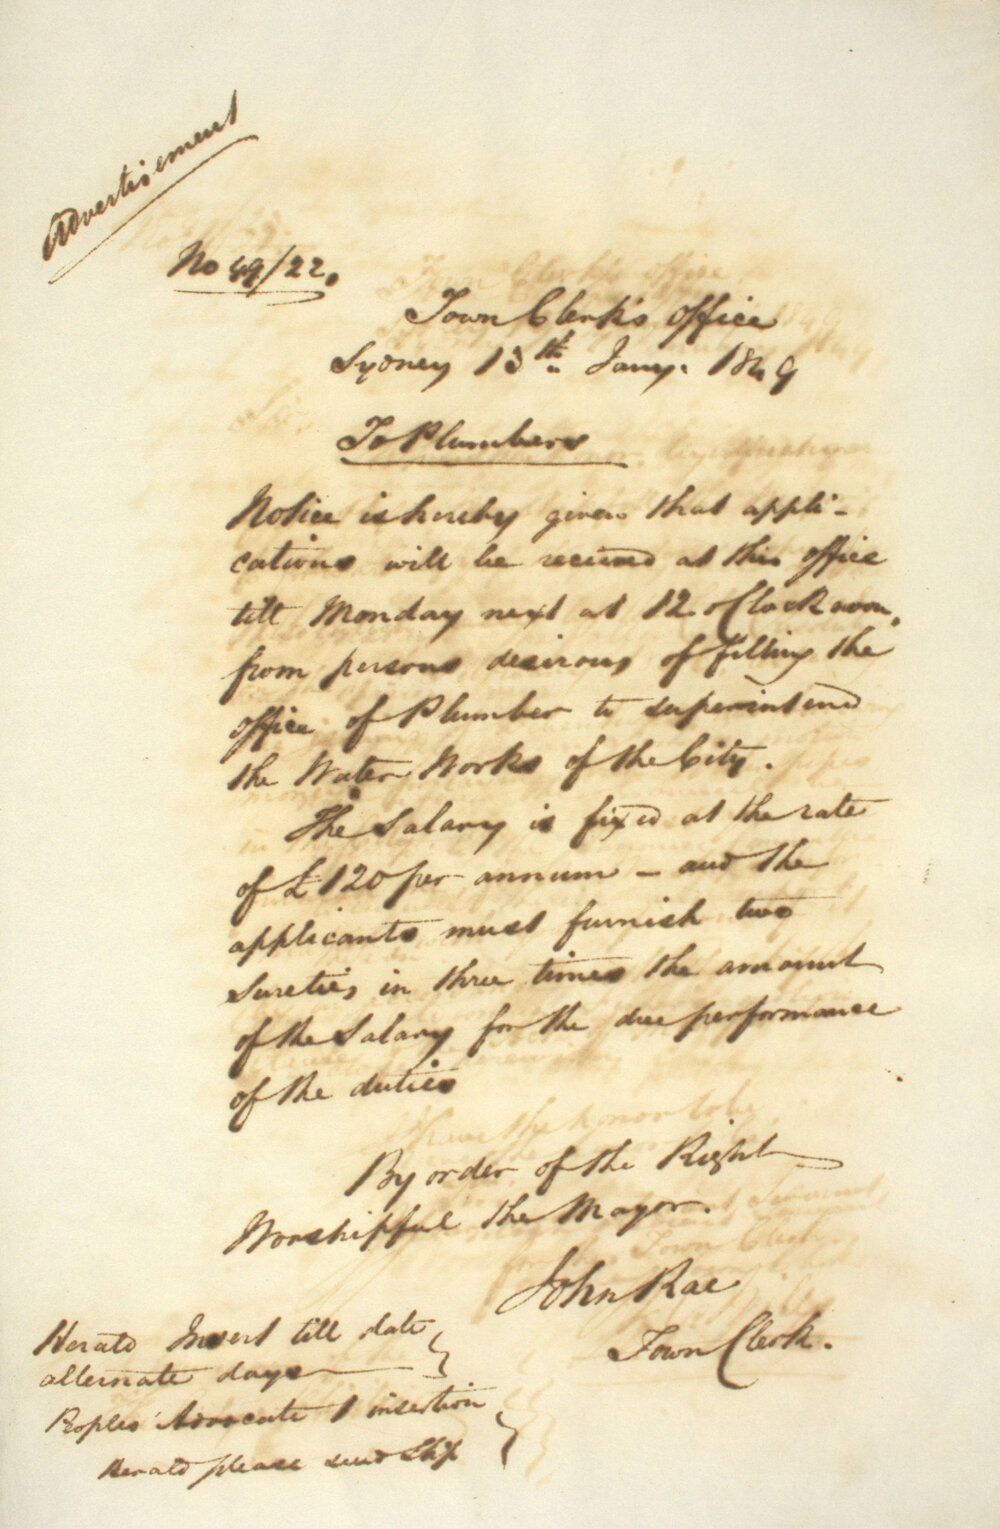 Advertisement
No 49/22.
Town Clerk's Office
Sydney 13th Jany. 1849
To Plumbers
Notice is hereby given that appli-
cations will be received at this office
till Monday next at 12 o'Clock noon,
from persons desirous of filling the
office of Plumber to superintend
the Water Works of the City.
The Salary is fixed at the rate
of £120 per annum - and the
applicants must furnish two
Sureties in three times the amount
of the Salary for the due performance
of the duties
By order of the Right
Worshipful the Mayor.
John Rae
Town Clerk.
Herald Insert till date
alternate days
Peoples Advocate 1 insertion
Herald please send Slip